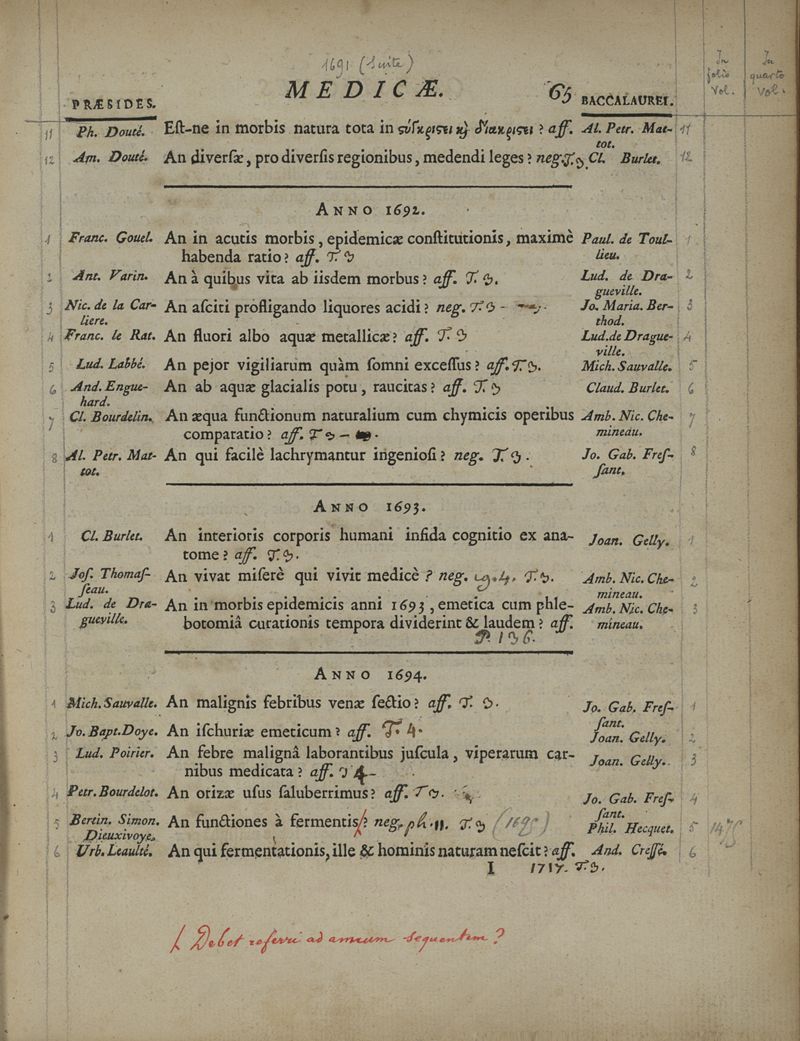 1691 (Suite)
MEDICÆ. 65
In folio Vol. In quarto Vol.
PRÆSIDES. BACCALAUREI.
11 Ph. Douté. Eſt-ne in morbis natura tota in σύγκρισει καὶ διακρισει ? aff. Al. Petr. Mat- 11
tot.
12 Am. Douté. An diverſæ, pro diverſis regionibus, medendi leges ? neg. T. 3 Cl. Burlet. 12
ANNO 1692.
1 Franc. Gouel. An in acutis morbis, epidemicæ conſtitutionis, maximè Paul. de Toul- 1
habenda ratio ? aff. T. 3 lieu.
2 Ant. Varin. An à quibus vita ab iisdem morbus ? aff. T. 3. Lud. de Dra- 2
gueville.
3 Nic. de la Car- An aſciti profligando liquores acidi ? neg. T. 3 - Jo. Maria. Ber- 3
liere. thod.
4 Franc. le Rat. An fluori albo aquæ metallicæ? aff. T. 3 Lud. de Drague- 4
ville.
5 Lud. Labbé. An pejor vigiliarum quàm ſomni exceſſus ? aff. T. 3. Mich. Sauvalle. 5
6 And. Engue- An ab aquæ glacialis potu, raucitas ? aff. T. 3 Claud. Burlet. 6
hard.
7 Cl. Bourdelin. An æqua functionum naturalium cum chymicis operibus Amb. Nic. Che- 7
comparatio ? aff. T 3 - mineau.
8 Al. Petr. Mat- An qui facilè lachrymantur ingenioſi ? neg. T. 3. Jo. Gab. Freſ- 8
tot. ſant.
ANNO 1693.
1 Cl. Burlet. An interioris corporis humani infida cognitio ex ana- Joan. Gelly. 1
tome ? aff. T. 3.
2 Joſ. Thomaſ- An vivat miſerè qui vivit medicè ? neg. 4. T. 3. Amb. Nic. Che- 2
ſeau. mineau.
3 Lud. de Dra- An in morbis epidemicis anni 1693, emetica cum phle- Amb. Nic. Che- 3
gueville. botomiâ curationis tempora dividerint & laudem ? aff. mineau.
P. 136.
ANNO 1694.
1 Mich. Sauvalle. An malignis febribus venæ ſectio ? aff. T. 3. Jo. Gab. Freſ- 1
ſant.
2 Jo. Bapt. Doye. An iſchuriæ emeticum ? aff. T. 4. Joan. Gelly. 2
3 Lud. Poirier. An febre malignâ laborantibus juſcula, viperarum car- Joan. Gelly. 3
nibus medicata ? aff. T 4-
4 Petr. Bourdelot. An orizæ uſus ſaluberrimus ? aff. T 3. Jo. Gab. Freſ- 4
ſant.
5 Bertin. Simon. An functiones à fermentis ? neg. T. 3 (1695) Phil. Hecquet. 5
Dieuxivoye.
6 Urb. Leaulté. An qui fermentationis, ille & hominis naturam neſcit ? aff. And. Creſſé. 6
I 1717. T. 3.
/ Debet referri ad annum sequentem ?